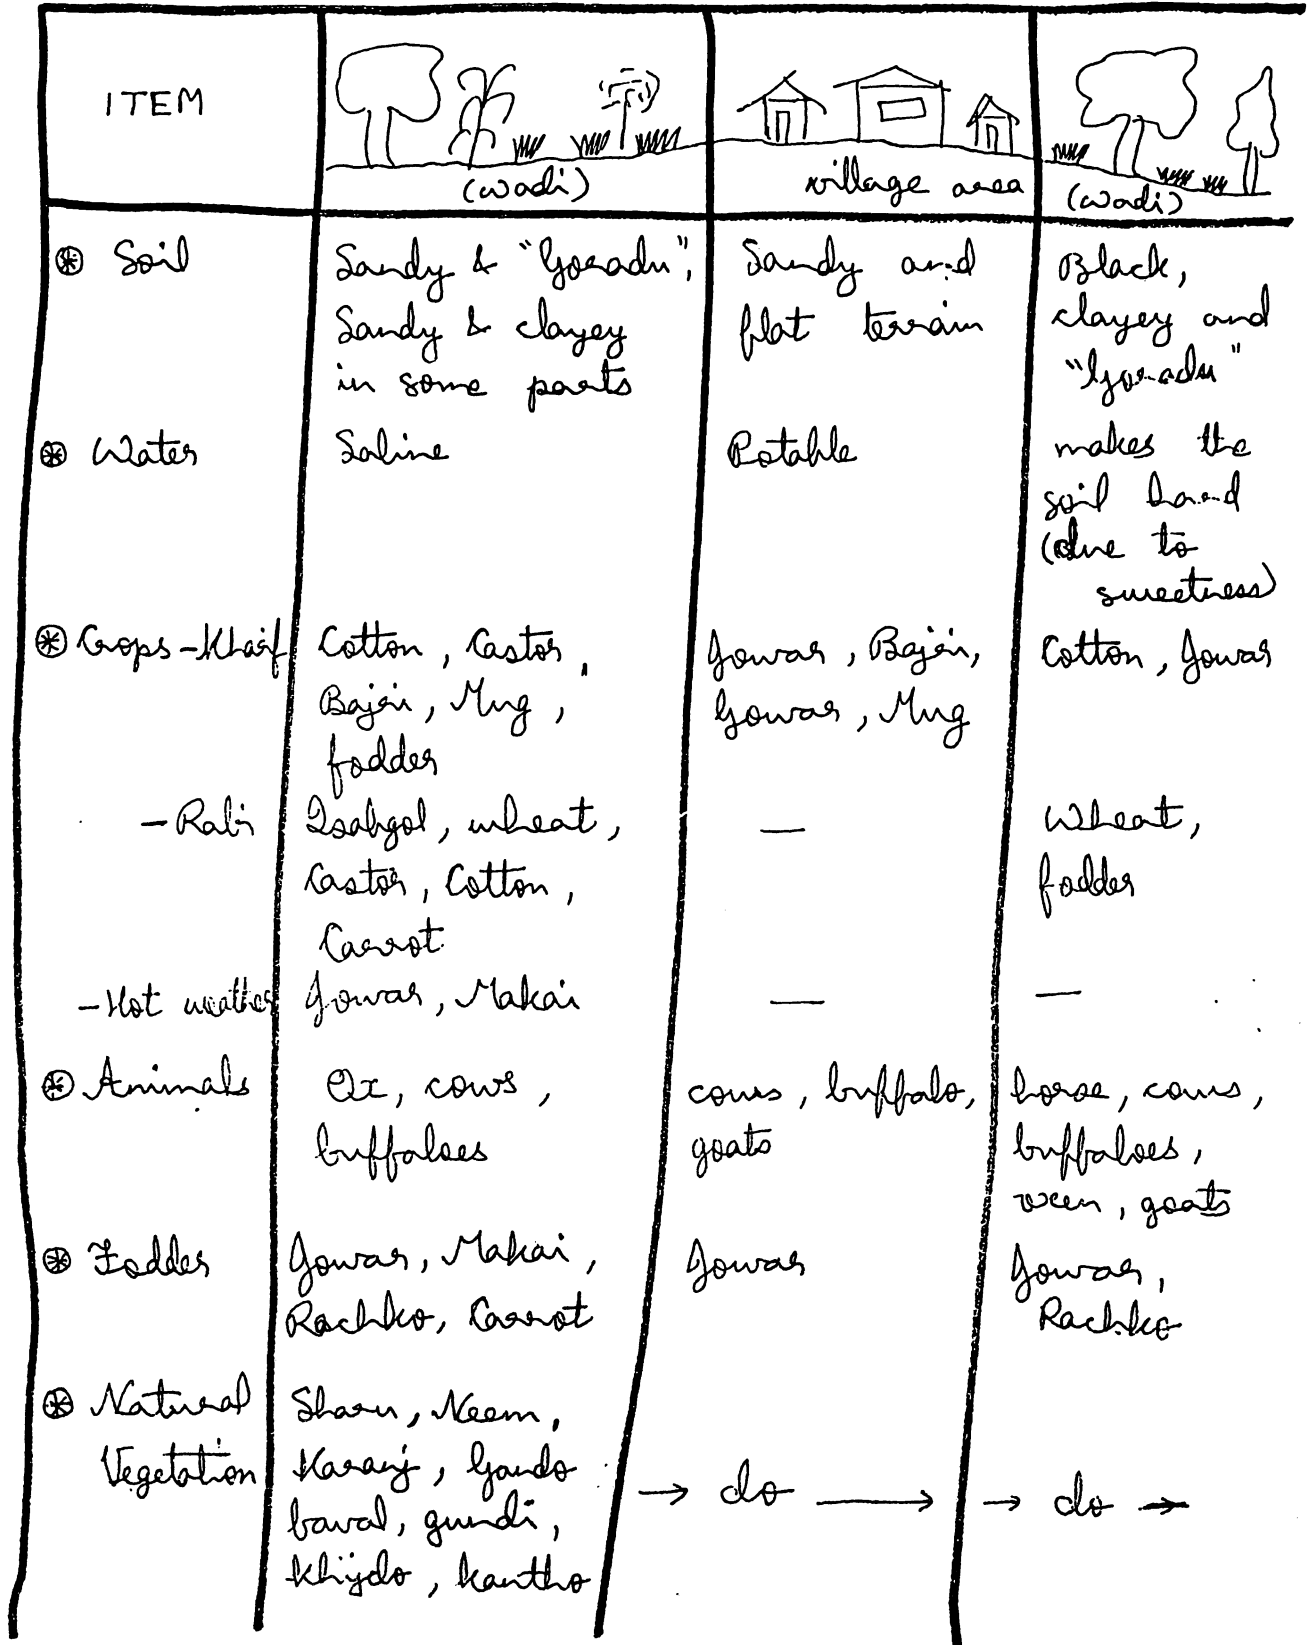 ITEM
(wadi)
village area
(wadi)
Soil
Sandy & "Goradu",
Sandy & clayey
in some parts
Sandy and
flat terrain
Black,
clayey and
"Goradu"
Water
Saline
Potable
makes the
soil hard
(due to
sweetness)
Crops - Kharif
Cotton, Castor,
Bajri, Mug,
fodder
Jowar, Bajri,
Gowar, Mug
Cotton, Jowar
- Rabi
Isabgol, wheat,
Castor, Cotton,
Carrot
—
Wheat,
fodder
- Hot weather
Jowar, Makai
—
—
Animals
Ox, cows,
buffaloes
cows, buffalo,
goats
horse, cows,
buffaloes,
oxen, goats
Fodder
Jowar, Makai,
Rachko, Carrot
Jowar
Jowar,
Rachko
Natural
Vegetation
Sharu, Neem,
Karanj, Gando
baval, gundi,
Khijdo, kantho
→ do →
→ do →